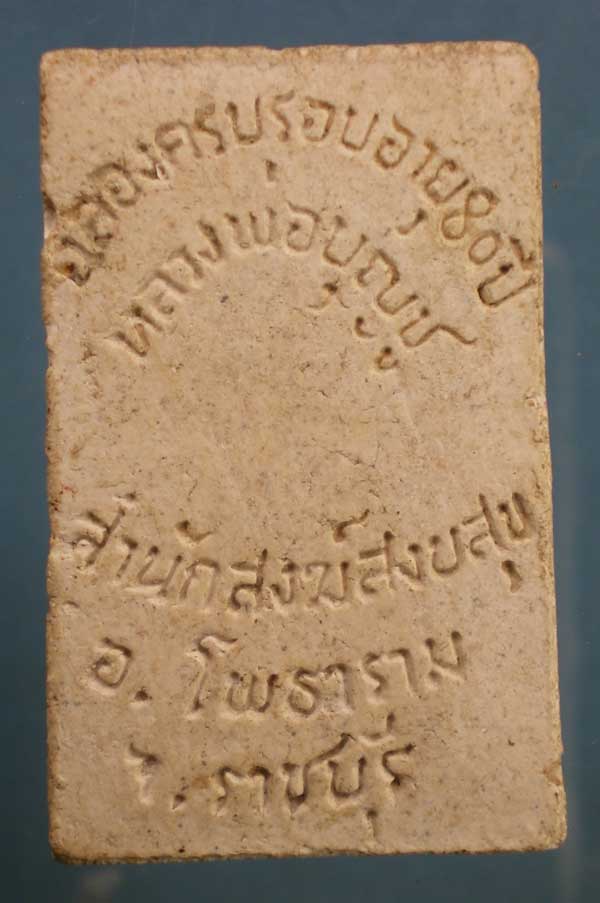 ฉลองครบรอบอายุ80ปี
หลวงพ่อบุญชู
สำนักสงฆ์สงบสุข
อ. โพธาราม
จ. ราชบุรี